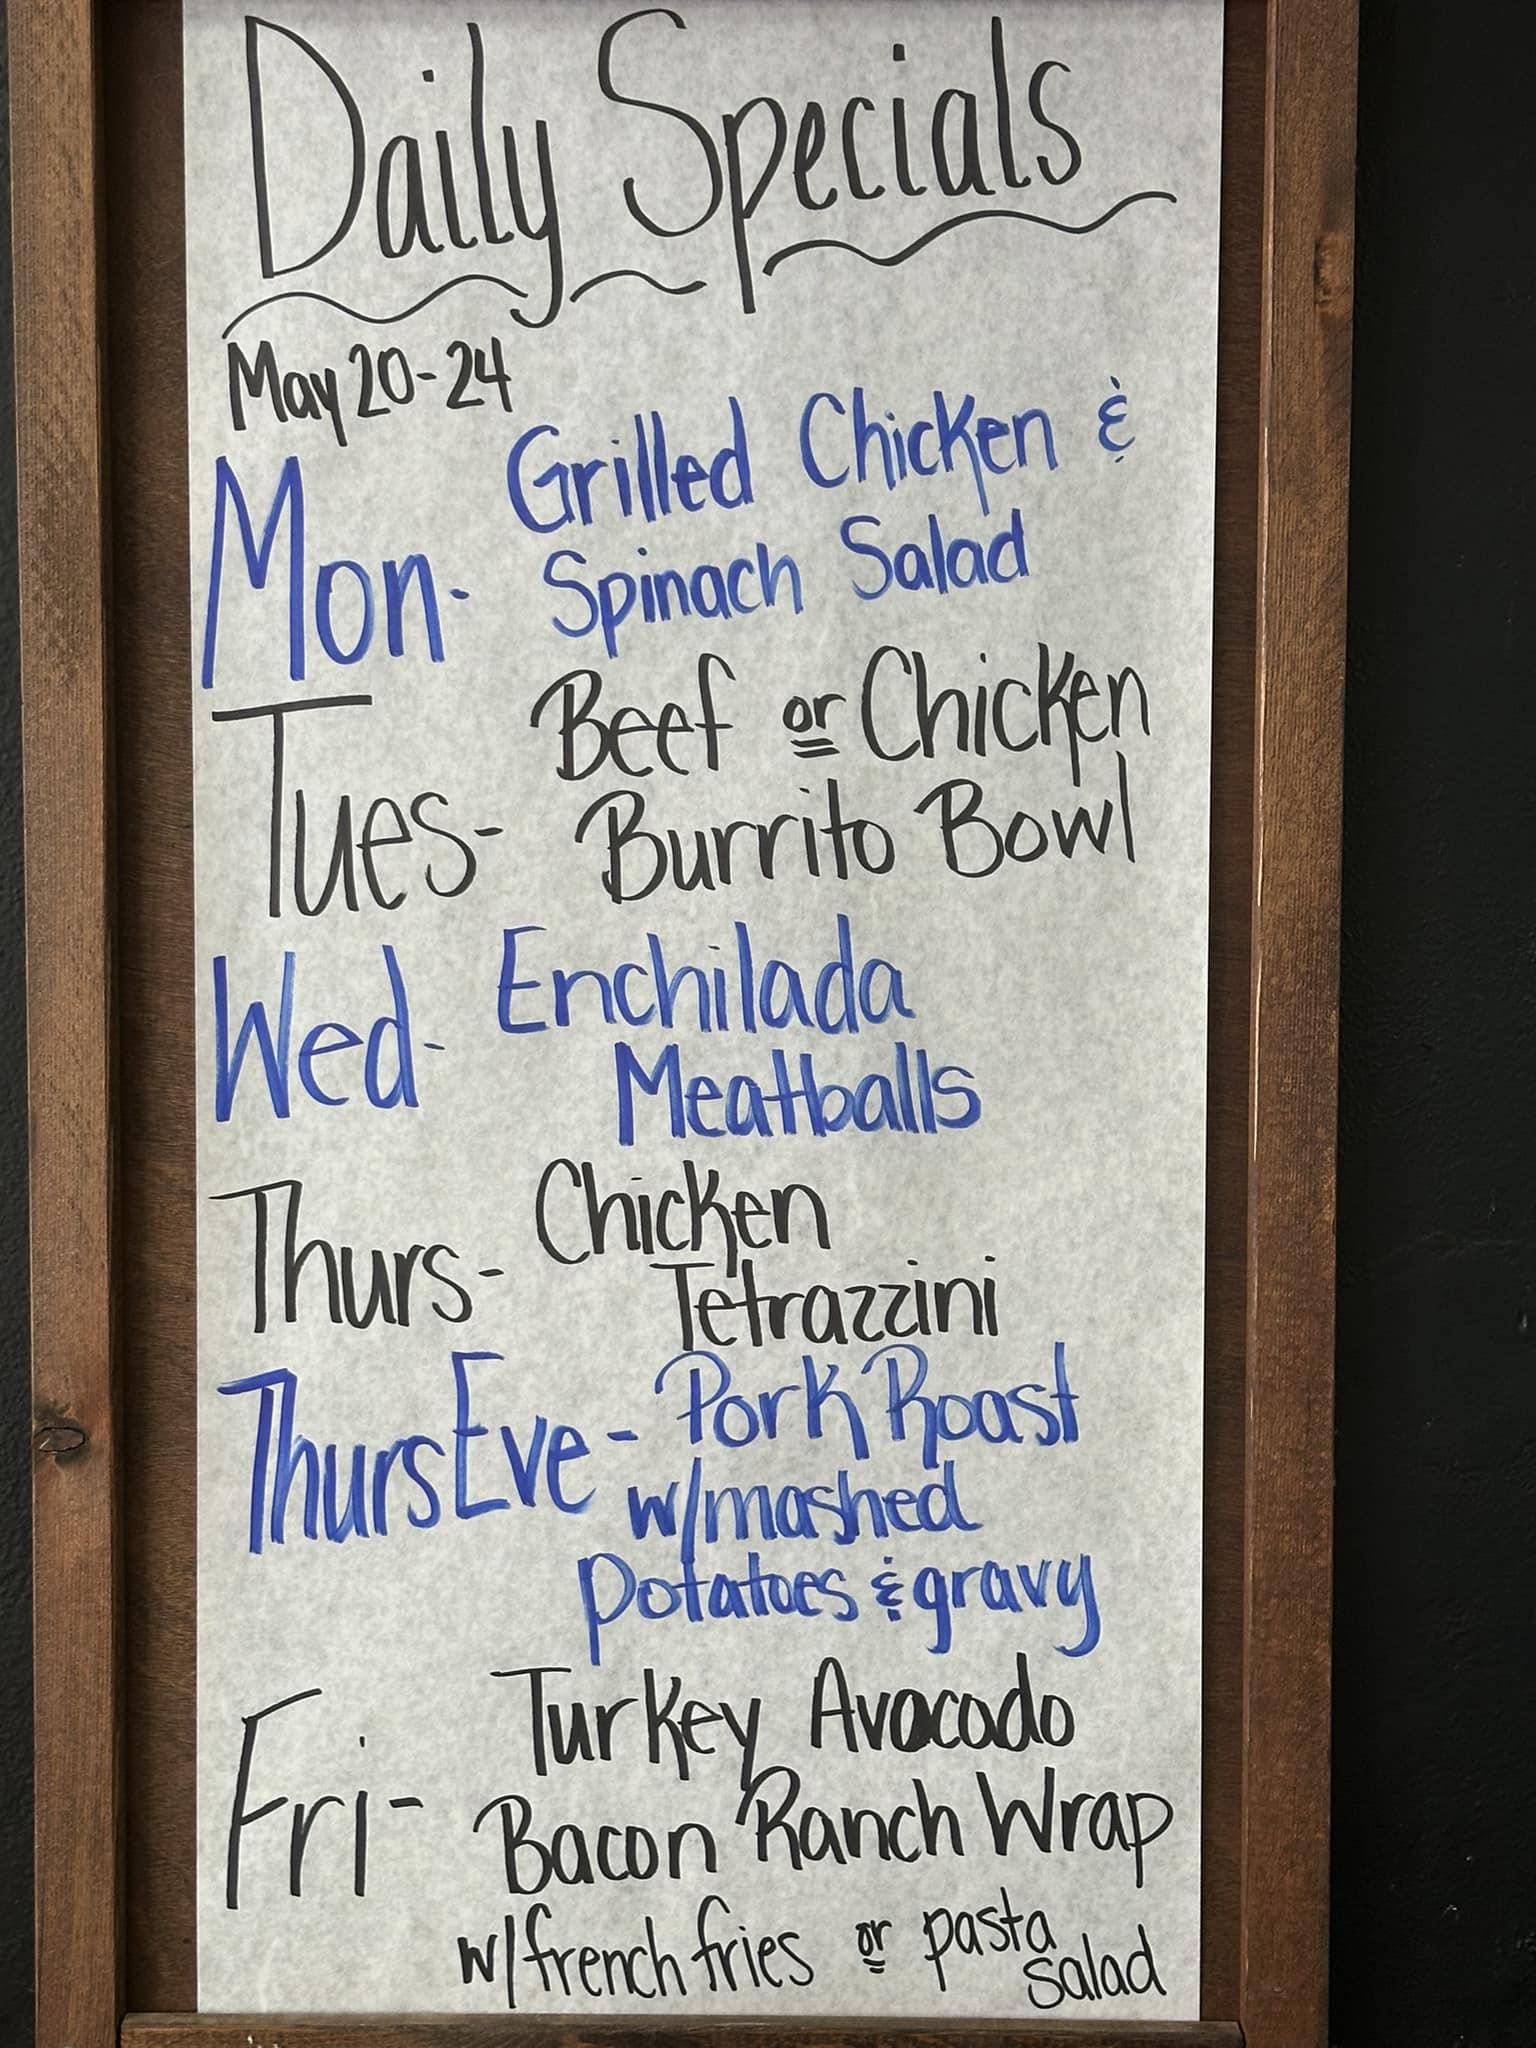 Daily Specials
May 20-24
Mon- Grilled Chicken &
Spinach Salad
Tues- Beef or Chicken
Burrito Bowl
Wed- Enchilada
Meatballs
Thurs- Chicken
Tetrazzini
Thurs Eve- Pork Roast
w/mashed
potatoes & gravy
Fri- Turkey Avacado
Bacon Ranch Wrap
w/french fries or pasta
salad